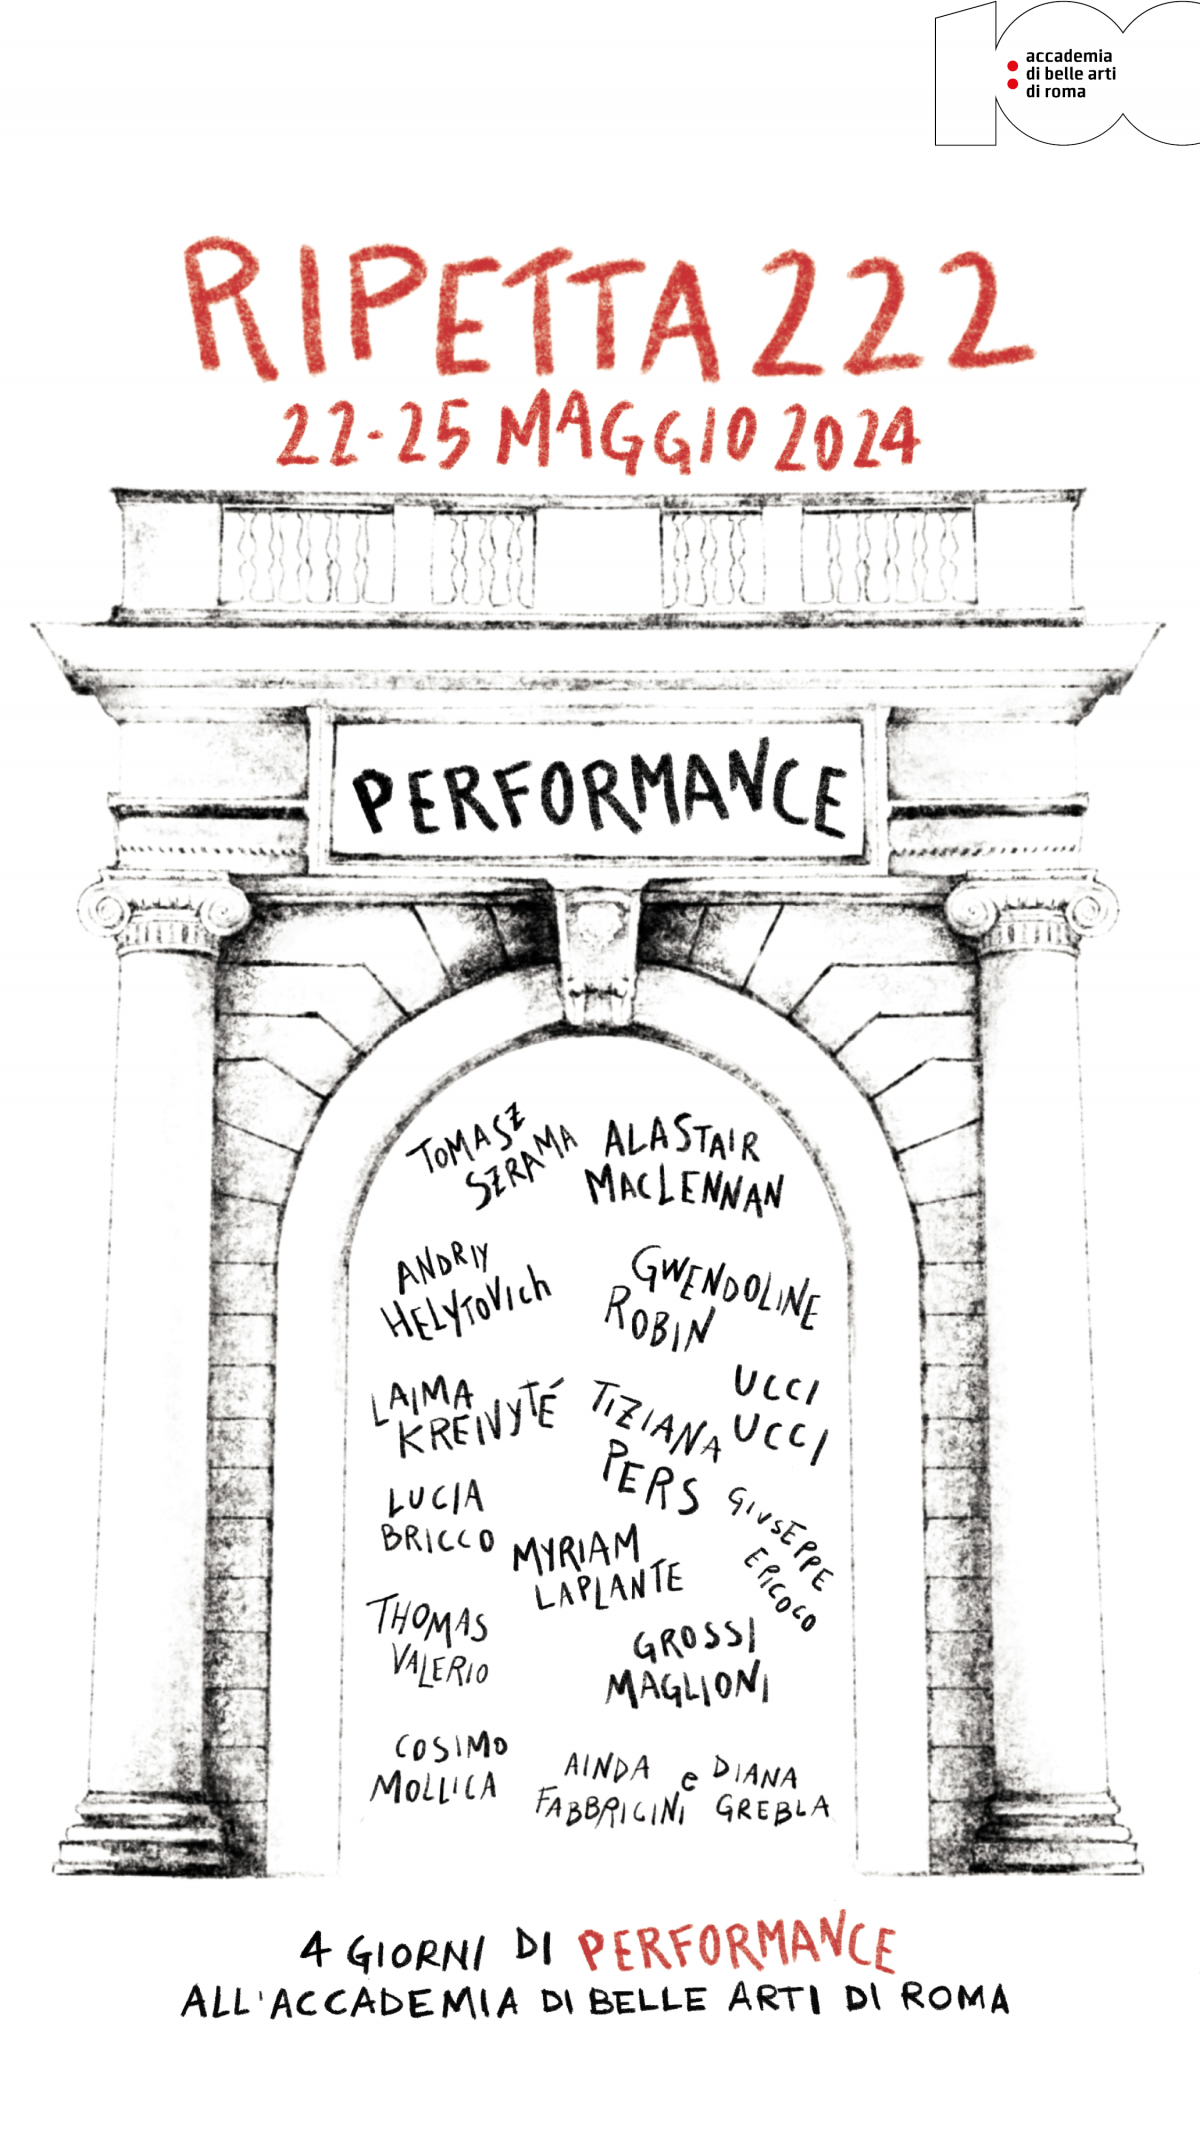 100
accademia
di belle arti
di roma
RIPETTA 222
22-25 MAGGIO 2024
PERFORMANCE
TOMASZ
SZRAMA
ALASTAIR
MACLENNAN
ANDRIY
HELYTOVICH
GWENDOLINE
ROBIN
LAIMA
KREIVYTÉ
TIZIANA
PERS
UCCI
UCCI
LUCIA
BRICCO
MYRIAM
LAPLANTE
GIUSEPPE
EPICOCO
THOMAS
VALERIO
GROSSI
MAGLIONI
COSIMO
MOLLICA
AINDA
FABBRICINI
e
DIANA
GREBLA
4 GIORNI DI PERFORMANCE
ALL'ACCADEMIA DI BELLE ARTI DI ROMA